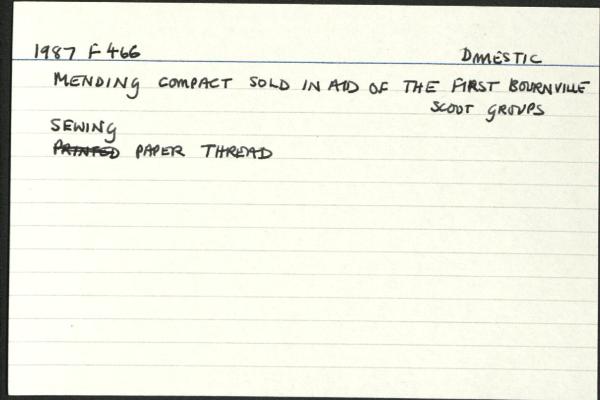 1987 F 466 DOMESTIC
MENDING COMPACT SOLD IN AID OF THE FIRST BOURNVILLE
SCOUT GROUPS
SEWING
PRINTED PAPER THREAD